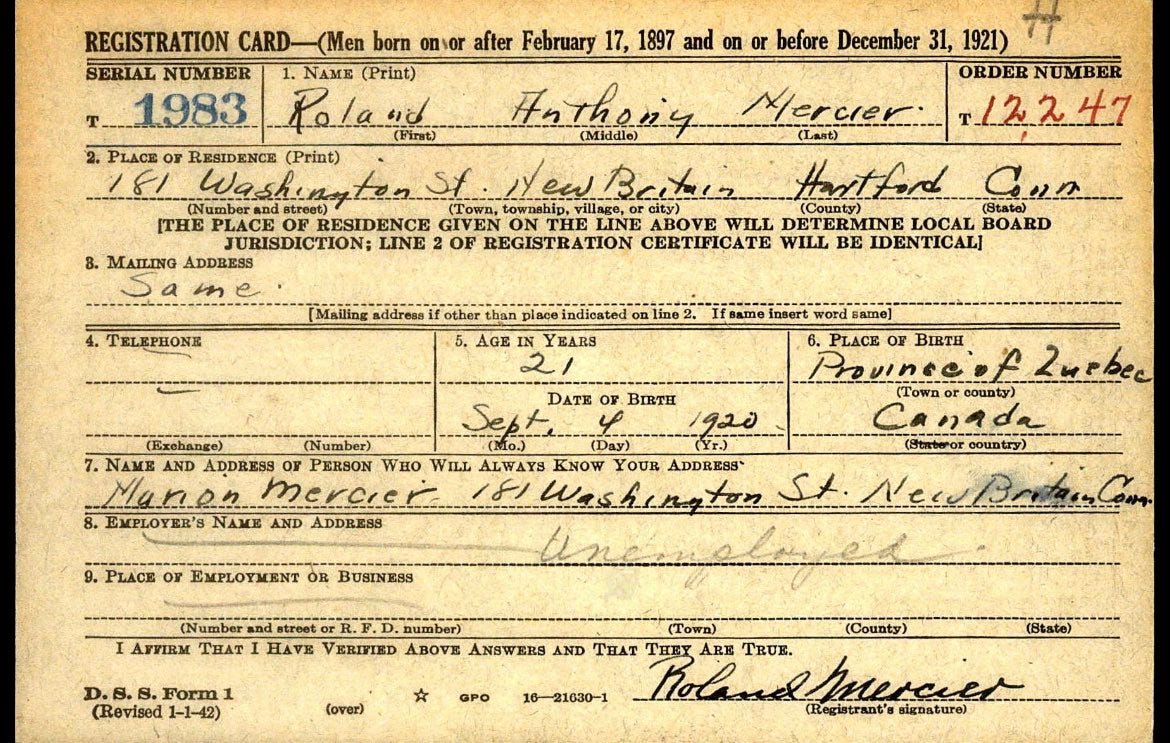 #
REGISTRATION CARD—(Men born on or after February 17, 1897 and on or before December 31, 1921)
SERIAL NUMBER 1. NAME (Print) ORDER NUMBER
T 1983 Roland Anthony Mercier. T 12,247
(First) (Middle) (Last)
2. PLACE OF RESIDENCE (Print)
181 Washington St. New Britain Hartford Conn
(Number and street) (Town, township, village, or city) (County) (State)
[THE PLACE OF RESIDENCE GIVEN ON THE LINE ABOVE WILL DETERMINE LOCAL BOARD
JURISDICTION; LINE 2 OF REGISTRATION CERTIFICATE WILL BE IDENTICAL]
3. MAILING ADDRESS
Same.
[Mailing address if other than place indicated on line 2. If same insert word same]
4. TELEPHONE 5. AGE IN YEARS 6. PLACE OF BIRTH
21 Province of Quebec
DATE OF BIRTH (Town or county)
Sept. 4 1920 Canada
(Exchange) (Number) (Mo.) (Day) (Yr.) (State or country)
7. NAME AND ADDRESS OF PERSON WHO WILL ALWAYS KNOW YOUR ADDRESS
Marion Mercier 181 Washington St. New Britain Conn.
8. EMPLOYER'S NAME AND ADDRESS
Unemployed.
9. PLACE OF EMPLOYMENT OR BUSINESS
(Number and street or R. F. D. number) (Town) (County) (State)
I AFFIRM THAT I HAVE VERIFIED ABOVE ANSWERS AND THAT THEY ARE TRUE.
D. S. S. Form 1 ☆ GPO 16—21630-1 Roland Mercier
(Revised 1-1-42) (over) (Registrant's signature)